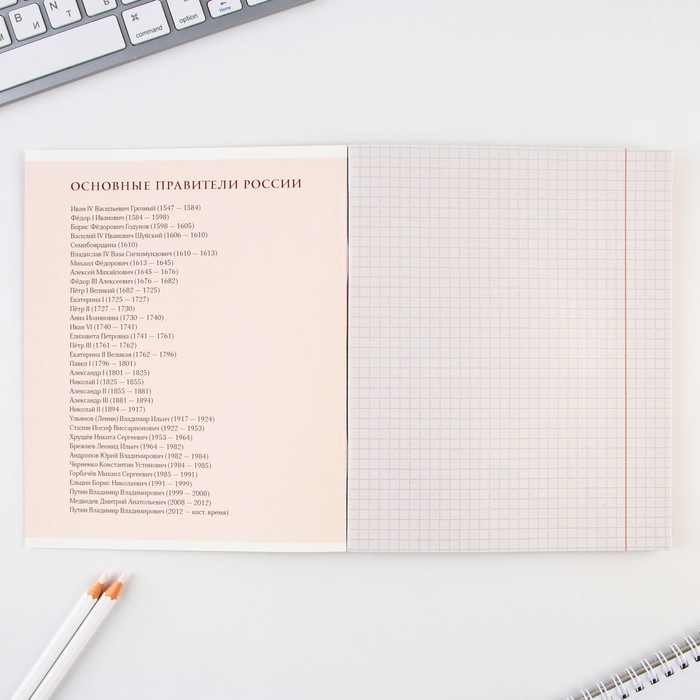 В
И
N
T
⌘
command
option
Home
ОСНОВНЫЕ ПРАВИТЕЛИ РОССИИ
Иван IV Васильевич Грозный (1547 — 1584)
Фёдор I Иванович (1584 — 1598)
Борис Фёдорович Годунов (1598 — 1605)
Василий IV Иванович Шуйский (1606 — 1610)
Семибоярщина (1610)
Владислав IV Ваза Сигизмундович (1610 — 1613)
Михаил Фёдорович (1613 — 1645)
Алексей Михайлович (1645 — 1676)
Фёдор III Алексеевич (1676 — 1682)
Пётр I Великий (1682 — 1725)
Екатерина I (1725 — 1727)
Пётр II (1727 — 1730)
Анна Иоанновна (1730 — 1740)
Иван VI (1740 — 1741)
Елизавета Петровна (1741 — 1761)
Пётр III (1761 — 1762)
Екатерина II Великая (1762 — 1796)
Павел I (1796 — 1801)
Александр I (1801 — 1825)
Николай I (1825 — 1855)
Александр II (1855 — 1881)
Александр III (1881 — 1894)
Николай II (1894 — 1917)
Ульянов (Ленин) Владимир Ильич (1917 — 1924)
Сталин Иосиф Виссарионович (1922 — 1953)
Хрущёв Никита Сергеевич (1953 — 1964)
Брежнев Леонид Ильич (1964 — 1982)
Андропов Юрий Владимирович (1982 — 1984)
Черненко Константин Устинович (1984 — 1985)
Горбачёв Михаил Сергеевич (1985 — 1991)
Ельцин Борис Николаевич (1991 — 1999)
Путин Владимир Владимирович (1999 — 2008)
Медведев Дмитрий Анатольевич (2008 — 2012)
Путин Владимир Владимирович (2012 — наст. время)